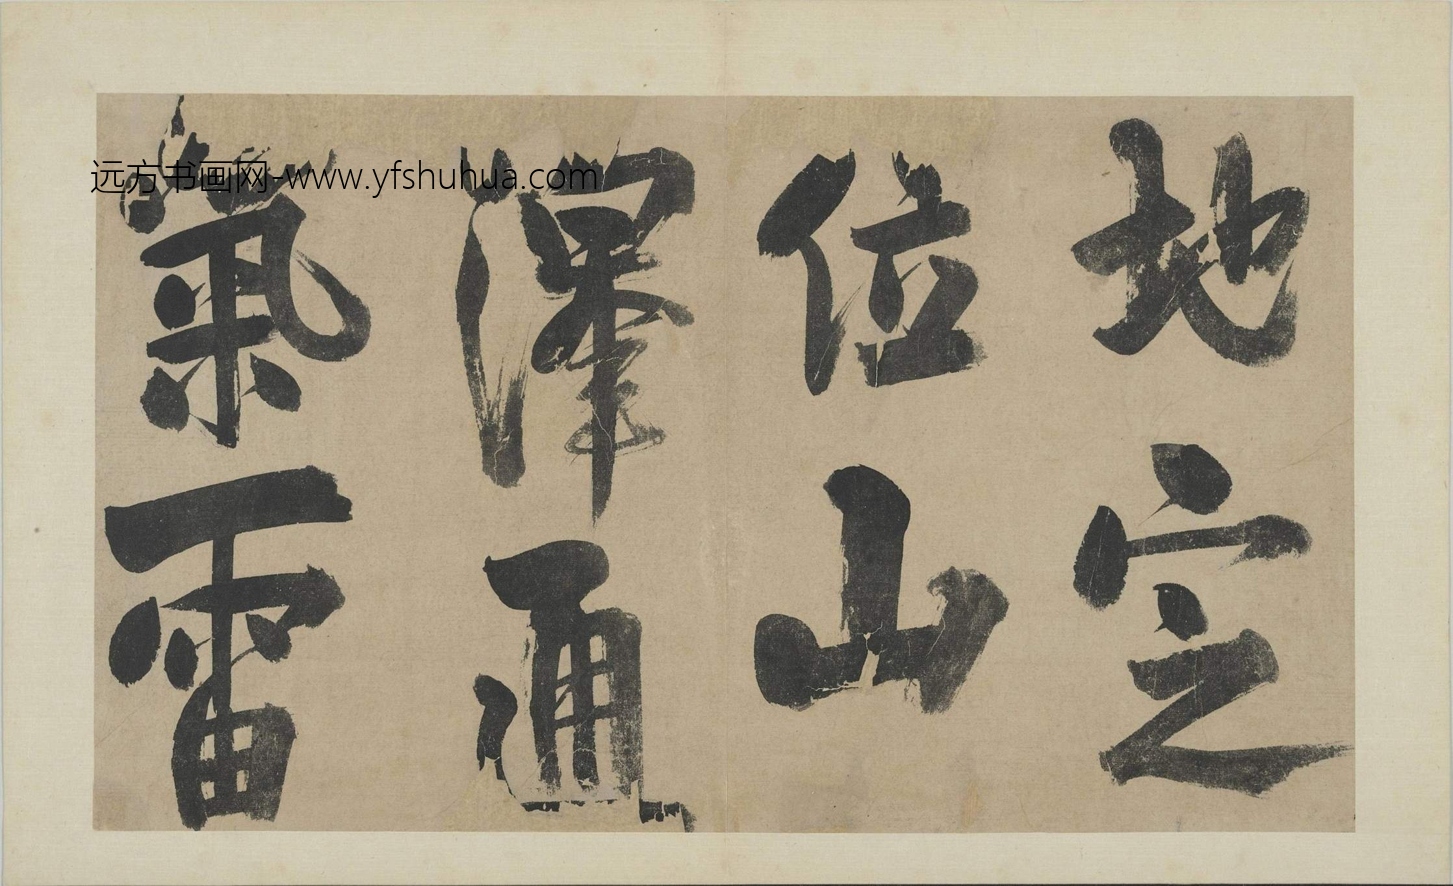 地定
位山
澤通
氣雷
远方书画网-www.yfshuhua.com